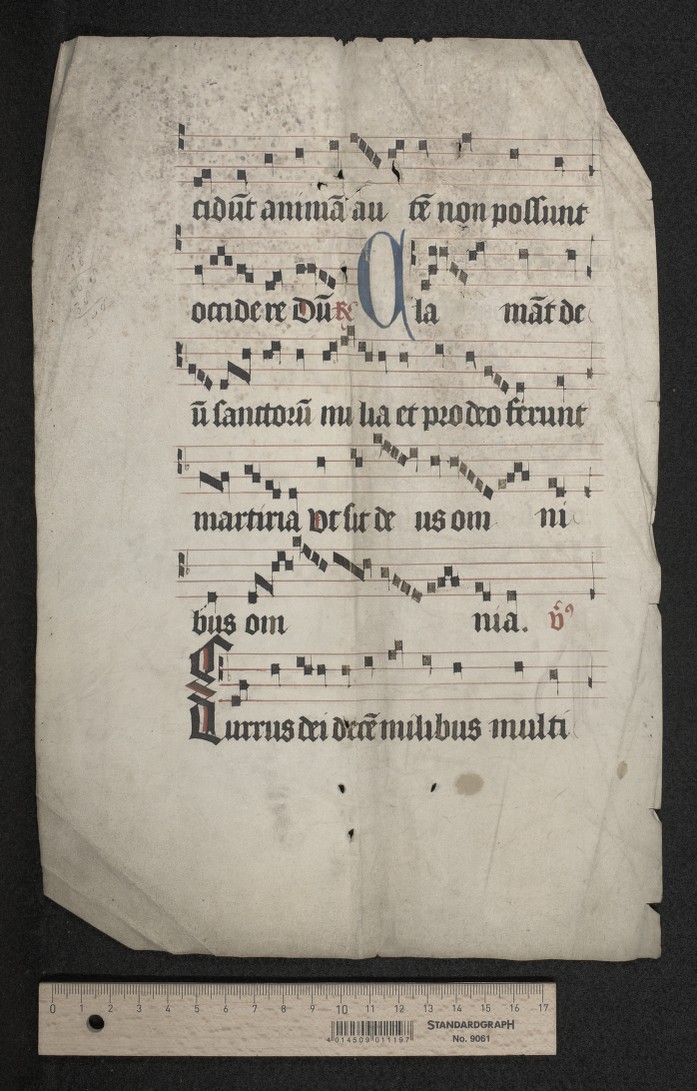 cidūt animā au tē non possunt
occidere Dū ℞ Ala māt de
ū sanctorū mi lia et pro deo ferunt
martiria Vt sit de us om ni
bus om nia. v̄ꝰ
Currus dei decē milibus multi
0 1 2 3 4 5 6 7 8 9 10 11 12 13 14 15 16 17
4 014509 011197
STANDARDGRAPH
No. 9061